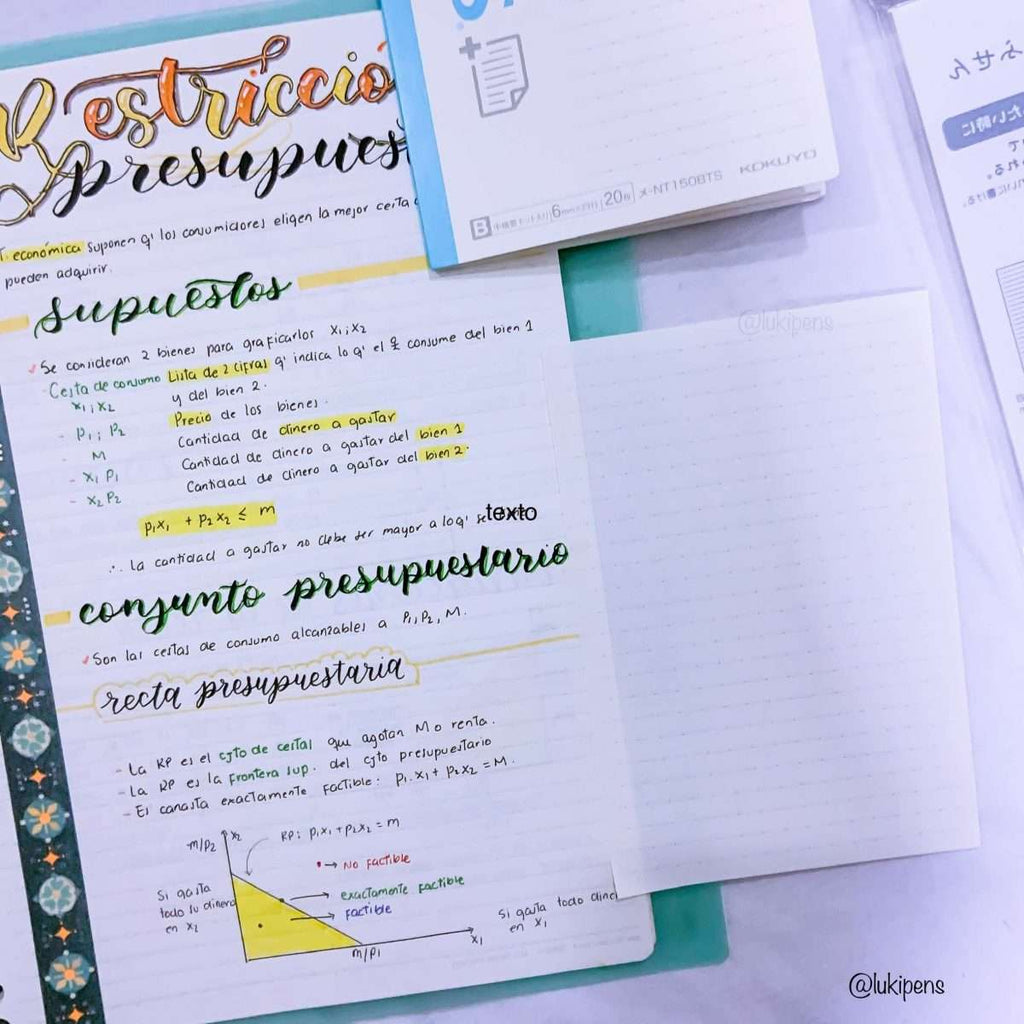 Restricció
presupues
T. económica suponen q' los consumidores eligen la mejor cesta
pueden adquirir.
supuestos
Se consideran 2 bienes para graficarlos X₁; X₂
- Cesta de consumo Lista de 2 cifras q' indica lo q' el € consume del bien 1
X₁; X₂ y del bien 2.
- P₁; P₂ Precio de los bienes.
- M Cantidad de dinero a gastar
- X₁ P₁ Cantidad de dinero a gastar del bien 1
- X₂ P₂ Cantidad de dinero a gastar del bien 2.
P₁X₁ + P₂X₂ ≤ m
∴ La cantidad a gastar no debe ser mayor a loq' se texto
conjunto presupuestario
Son las cestas de consumo alcanzables a P₁, P₂, M.
recta presupuestaria
- La RP es el cjto de cestas que agotan M o renta.
- La RP es la frontera sup. del cjto presupuestario
- Es canasta exactamente factible: P₁.X₁ + P₂X₂ = M.
m/P₂ X₂ RP: P₁X₁ + P₂X₂ = m
No factible
exactamente factible
factible
Si gasta
todo su dinero
en X₂
Si gasta todo dine
en X₁
X₁
m/P₁
B 6mm×29行 20枚 メ-NT150BTS KOKUYO
ふせん
たい時に
@lukipens
@lukipens